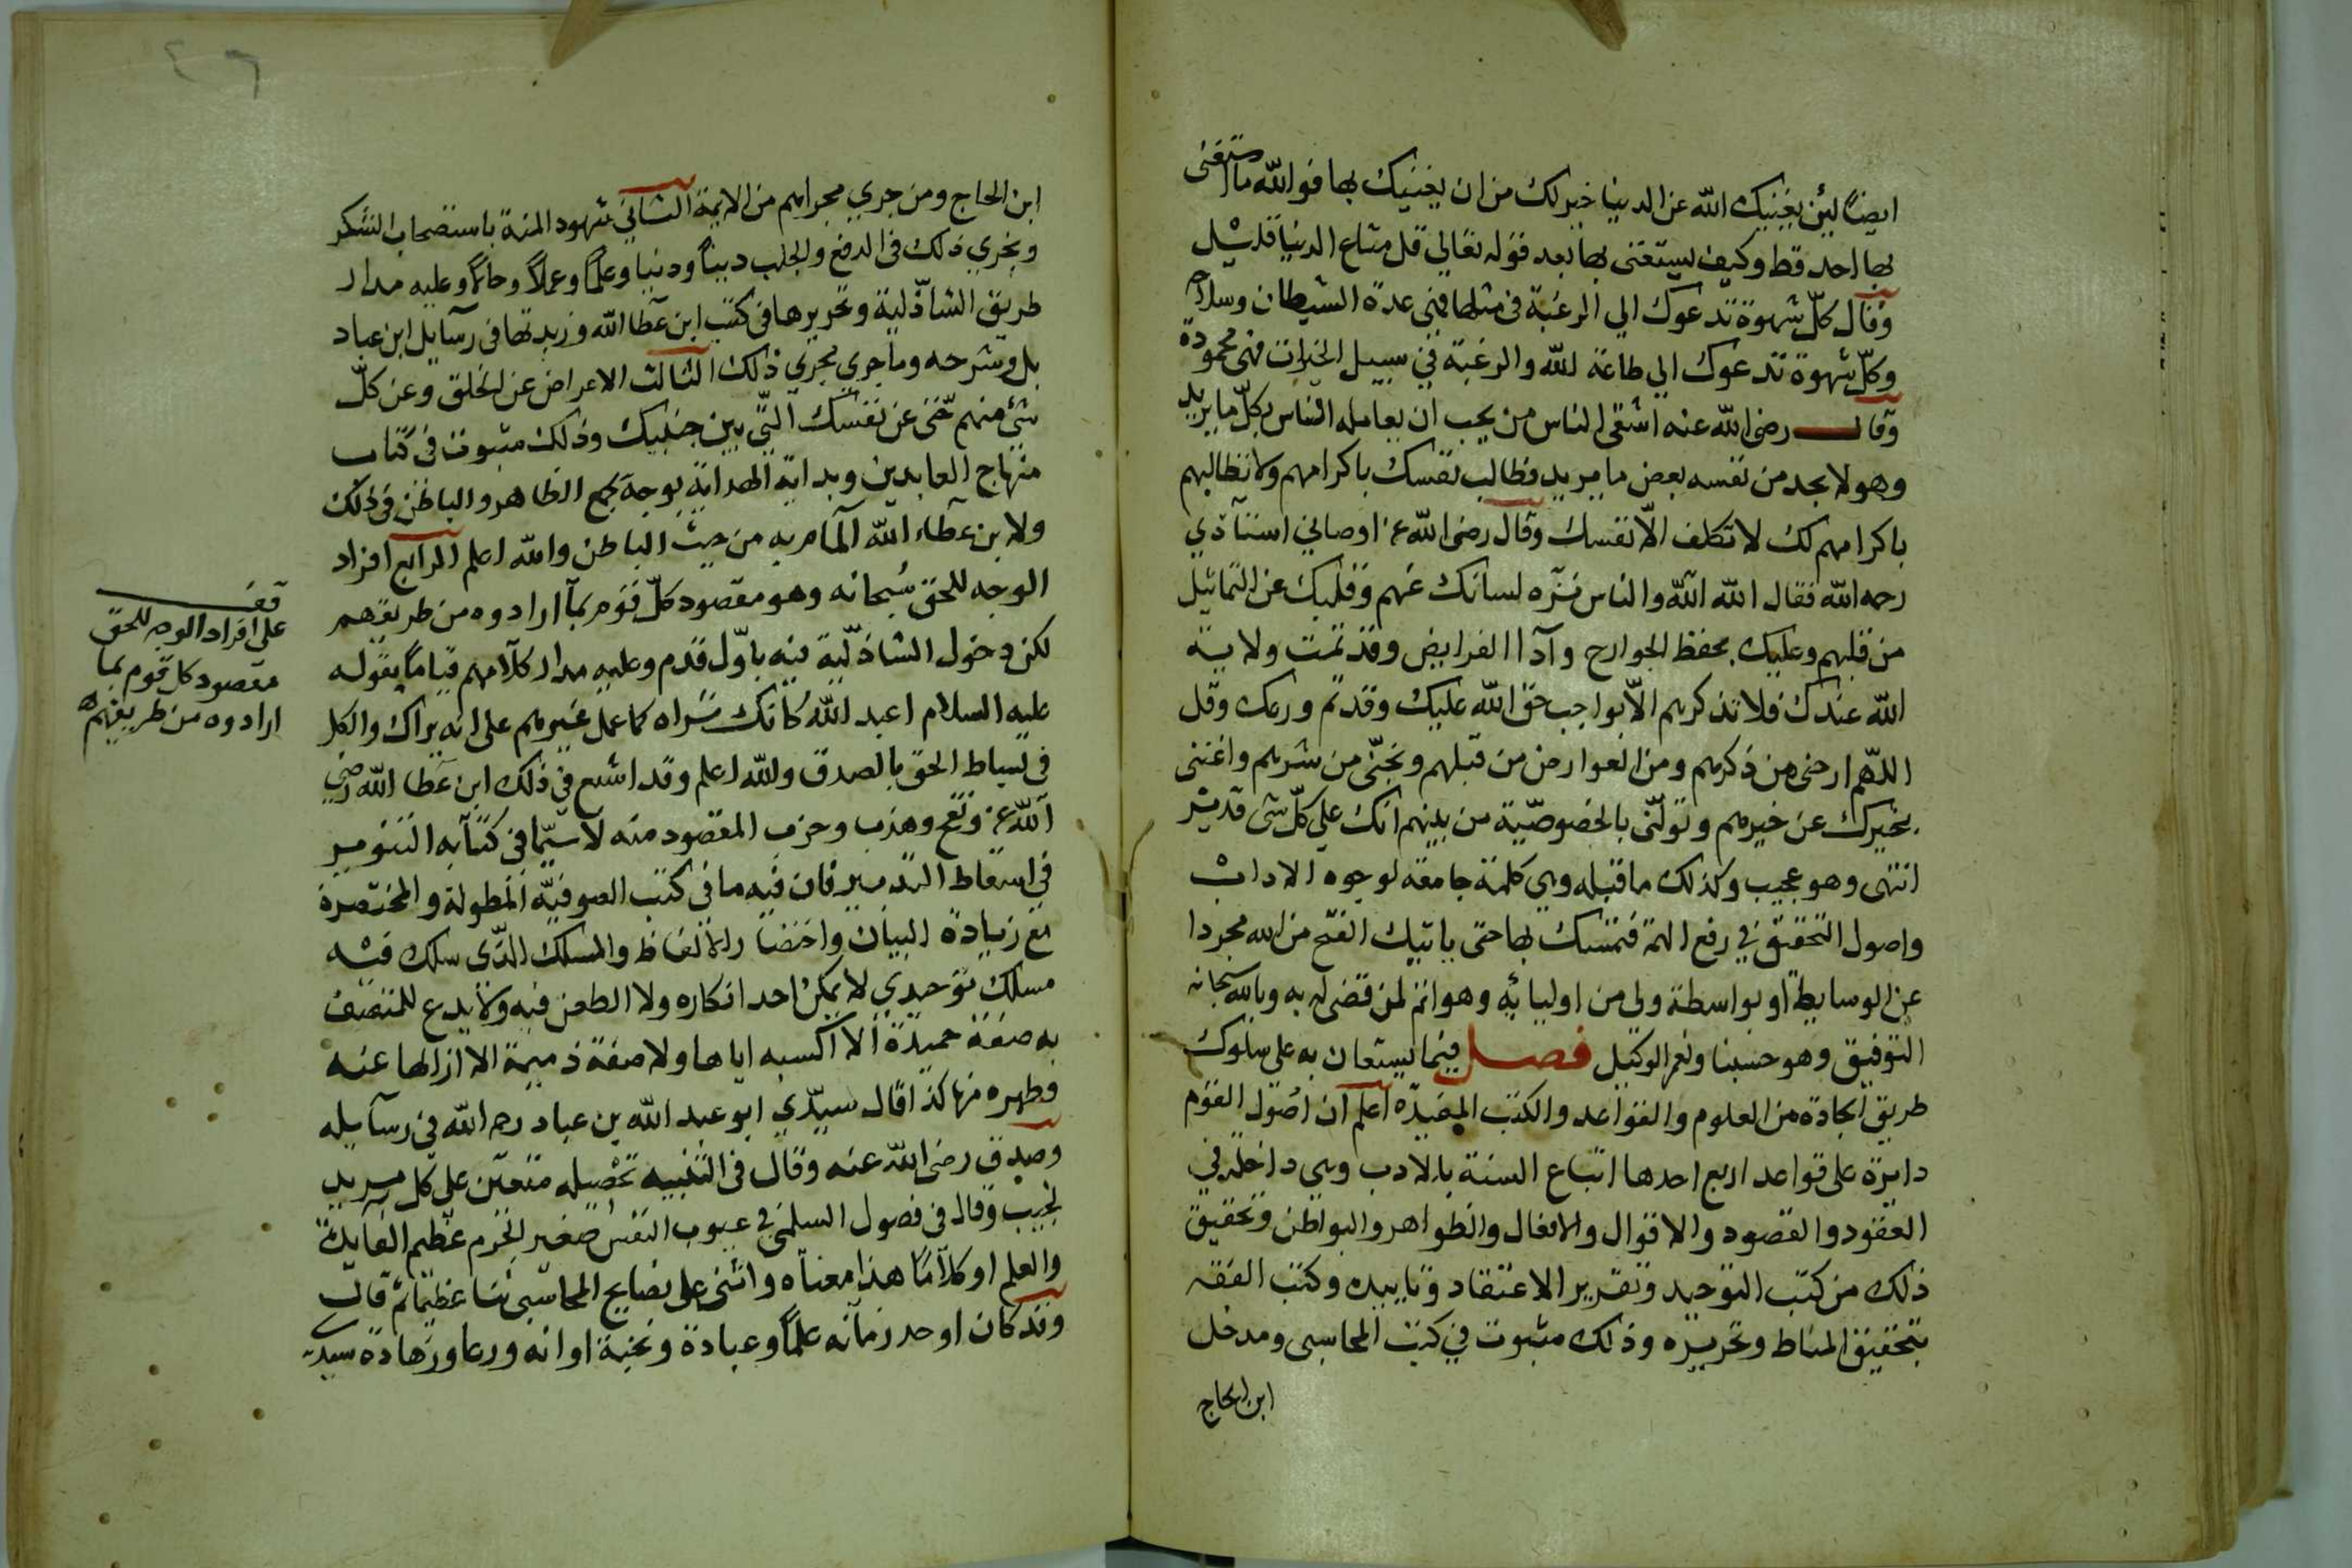 ايضا لئن يغنيك الله عن الدنيا خير لك من ان يغنيك بها فوالله ما استغنى
بها احد قط وكيف يستغنى بها بعد قوله تعالي قل متاع الدنيا قليل
وقال كل شهوة تدعوك الي الرغبة في مثلها فهي عدة الشيطان وسلاحه
وكل شهوة تدعوك الي طاعة لله والرغبة في سبيل الخيرات فهي محمودة
وقال رضي الله عنه اشقى الناس من يحب ان يعامله الناس بكل ما يريد
وهو لا يجد من نفسه بعض ما يريد فطالب نفسك باكرامهم ولا تطالبهم
باكرامهم لك لا تكلف الا نفسك وقال رضي الله عنه اوصاني استاذي
رحمه الله فقال الله الله والناس نزه لسانك عنهم وقلبك عن التماثيل
من قبلهم وعليك بحفظ الجوارح وآداا الفرايض وقد تمت ولاية
الله عندك فلا تذكرهم الا بواجب حق الله عليك وقد تم ورعك وقل
اللهم ارحني من ذكرهم ومن العوارض من قبلهم ونجني من شرهم واغنني
بخيرك عن خيرهم وتولني بالخصوصية من بينهم انك علي كل شي قدير
انتهى وهو عجيب وكذلك ما قبله وهي كلمة جامعة لوجوه الاداب
واصول التحقيق في رفع الهمة فتمسك بها حتى ياتيك الفتح من الله مجردا
عن الوسايط او بواسطة ولي من اوليايه وهو اتم لمن قضي له به وبالله سبحانه
التوفيق وهو حسبنا ونعم الوكيل فصل فيما يستعان به على سلوك
طريق الجادة من العلوم والقواعد والكتب المفيدة اعلم ان اصول القوم
دايرة على قواعد اربع احدها اتباع السنة بالادب وهي داخلة في
العقود والقصود والاقوال والافعال والظواهر والبواطن وتحقيق
ذلك من كتب التوحيد وتقرير الاعتقاد وتاييده وكتب الفقه
بتحقيق المناط وتحريره وذلك مثبوت في كتب المحاسبي ومدخل
ابن الحاج
ابن الحاج ومن جري مجراهم من الايمة الثاني شهود المنة باستصحاب الشكر
ويجري ذلك في الدفع والجلب دينا ودنيا وعلما وعملا وحالا وعليه مدار
طريق الشاذلية وتحريرها في كتب ابن عطا الله وزبدتها في رسايل ابن عباد
بل وشرحه وما جري مجري ذلك الثالث الاعراض عن الخلق وعن كل
شئ منهم حتى عن نفسك التي بين جنبيك وذلك مثبوت في كتاب
منهاج العابدين وبداية الهداية بوجه يجمع الظاهر والباطن في ذلك
ولابن عطاء الله المام به من حيث الباطن والله اعلم الرابع افراد
الوجه للحق سبحانه وهو مقصود كل قوم بما ارادوه من طريقهم
لكن دخول الشاذلية فيه باول قدم وعليه مدار كلامهم قياما بقوله
عليه السلام اعبد الله كانك تراه كما عمل غيرهم على انه يراك والكل
في بساط الحق بالصدق والله اعلم وقد اشبع في ذلك ابن عطا الله رضي
الله عنه ونقح وهذب وحزب المقصود منه لا سيما في كتابه التنوير
في اسقاط التدبير فان فيه ما في كتب الصوفية المطولة والمختصرة
مع زيادة البيان واختصار الالفاظ والمسلك الذي سلك فيه
مسلك توحيدي لا يمكن احد انكاره ولا الطعن فيه ولا يدع للمتصف
به صفة حميدة الا اكسبه اياها ولا صفة ذميمة الا ازالها عنه
وطهره منها كذا قال سيدي ابو عبد الله بن عباد رحمه الله في رسايله
وصدق رضي الله عنه وقال في التنبيه تحصيله متعين على كل مريد
نجيب وقال في فصول السلمي في عيوب النفس صغير الجرم عظيم الفايدة
والعلم او كلاما هذا معناه واثنى على نصايح المحاسبي ثنا عظيما ثم قال
وقد كان اوحد زمانه علما وعبادة ونخبة اوانه ورعا وزهادة سيد
قف
على افراد الوجه للحق
مقصود كل قوم بما
ارادوه من طريقهم